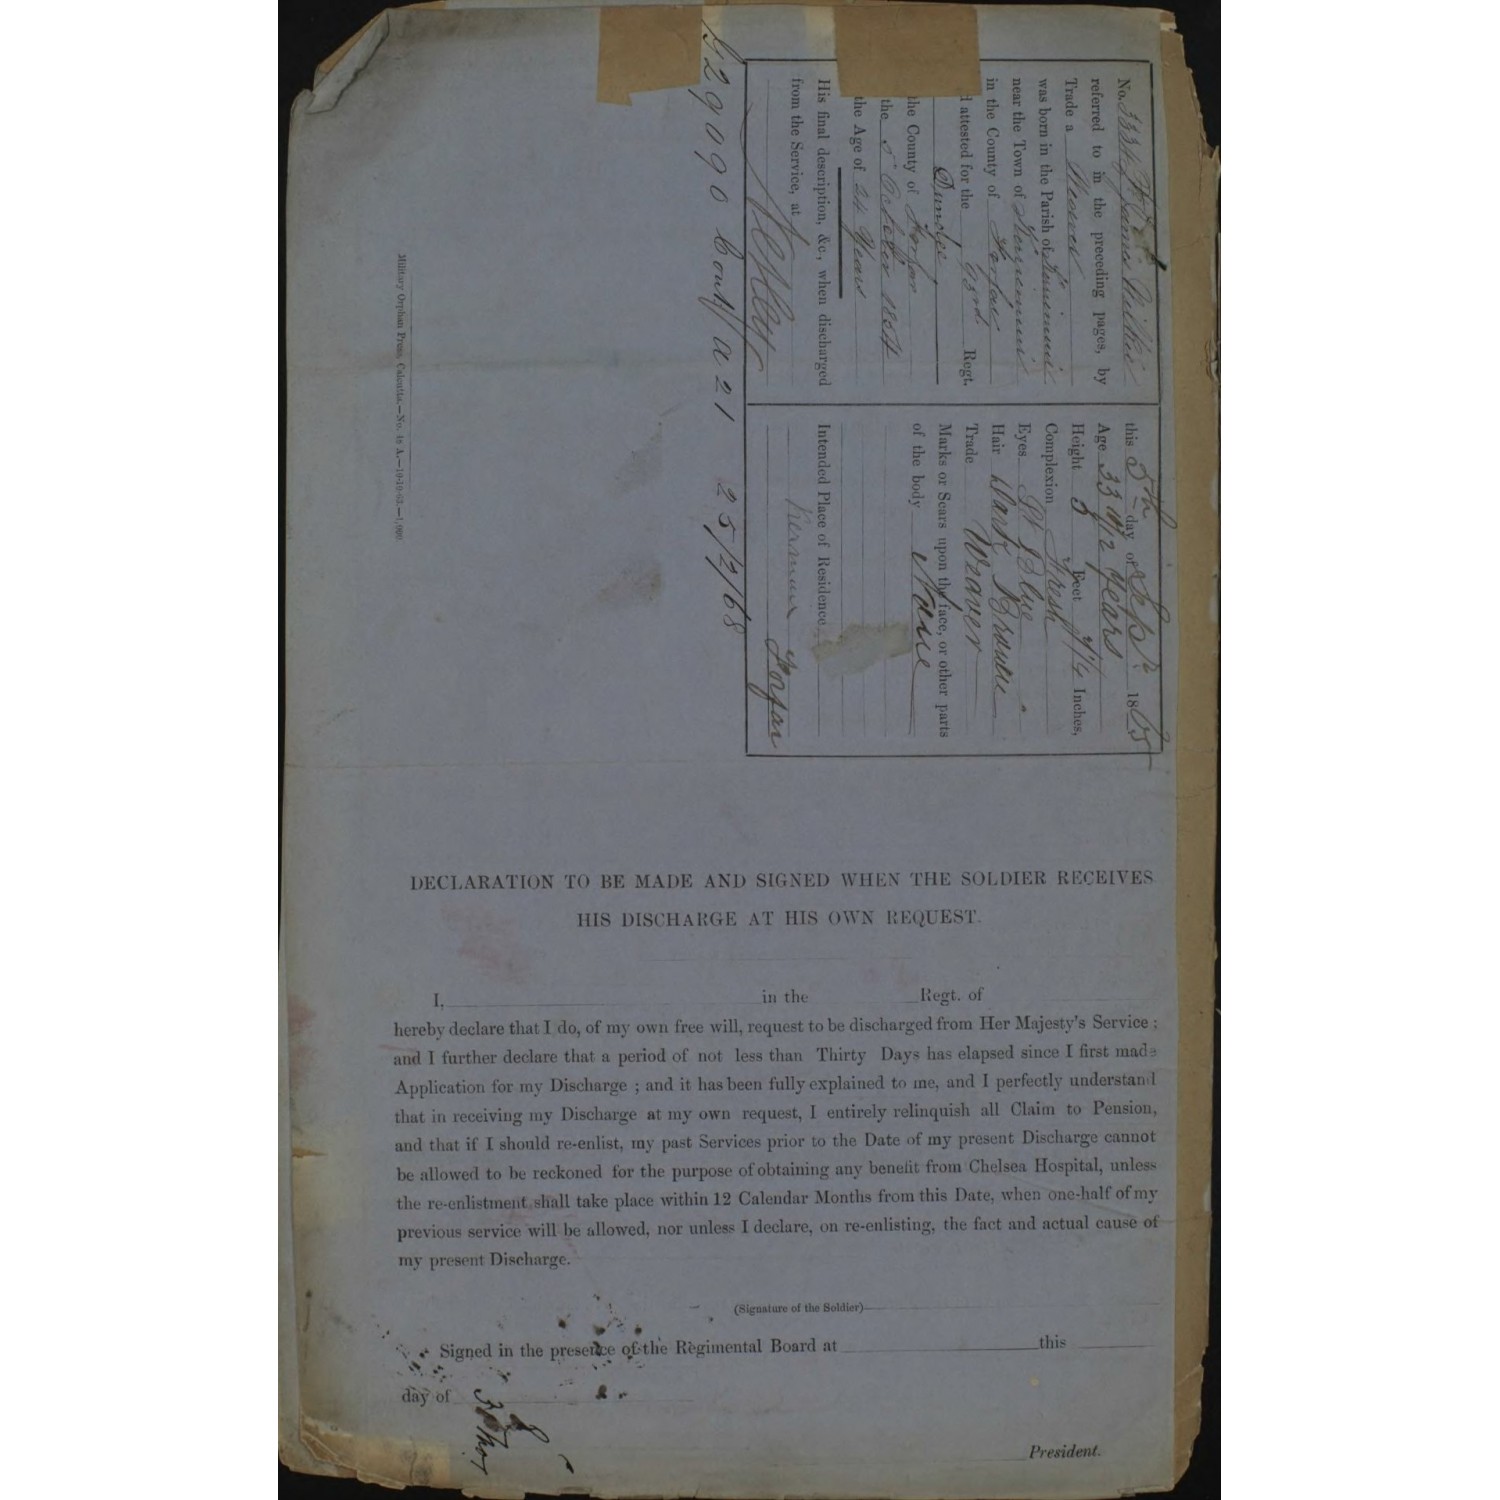 No. 3334 Pte James Milne
referred to in the preceding pages, by
Trade a Weaver
was born in the Parish of Kirriemuir
near the Town of Kirriemuir
in the County of Forfar
d attested for the 93rd Regt.
Dundee
the County of Forfar
the 5 October 1854
the Age of 24 Years
His final description, &c., when discharged
from the Service, at
Netley
this 5th day of Sepr. 1865
Age 33 11/12 Years
Height 5 Feet 7 1/4 Inches,
Complexion Fresh
Eyes Lt Blue
Hair Dark Brown
Trade Weaver
Marks or Scars upon the face, or other parts
of the body None
Intended Place of Residence
Forfar
29090 a 21 25/2/68
Military Orphan Press, Calcutta.—No. 48 A.—10-10-63.—1,000.
DECLARATION TO BE MADE AND SIGNED WHEN THE SOLDIER RECEIVES
HIS DISCHARGE AT HIS OWN REQUEST.
I, in the Regt. of
hereby declare that I do, of my own free will, request to be discharged from Her Majesty's Service ;
and I further declare that a period of not less than Thirty Days has elapsed since I first made
Application for my Discharge ; and it has been fully explained to me, and I perfectly understand
that in receiving my Discharge at my own request, I entirely relinquish all Claim to Pension,
and that if I should re-enlist, my past Services prior to the Date of my present Discharge cannot
be allowed to be reckoned for the purpose of obtaining any benefit from Chelsea Hospital, unless
the re-enlistment shall take place within 12 Calendar Months from this Date, when one-half of my
previous service will be allowed, nor unless I declare, on re-enlisting, the fact and actual cause of
my present Discharge.
(Signature of the Soldier)
Signed in the presence of the Regimental Board at this
day of
President.